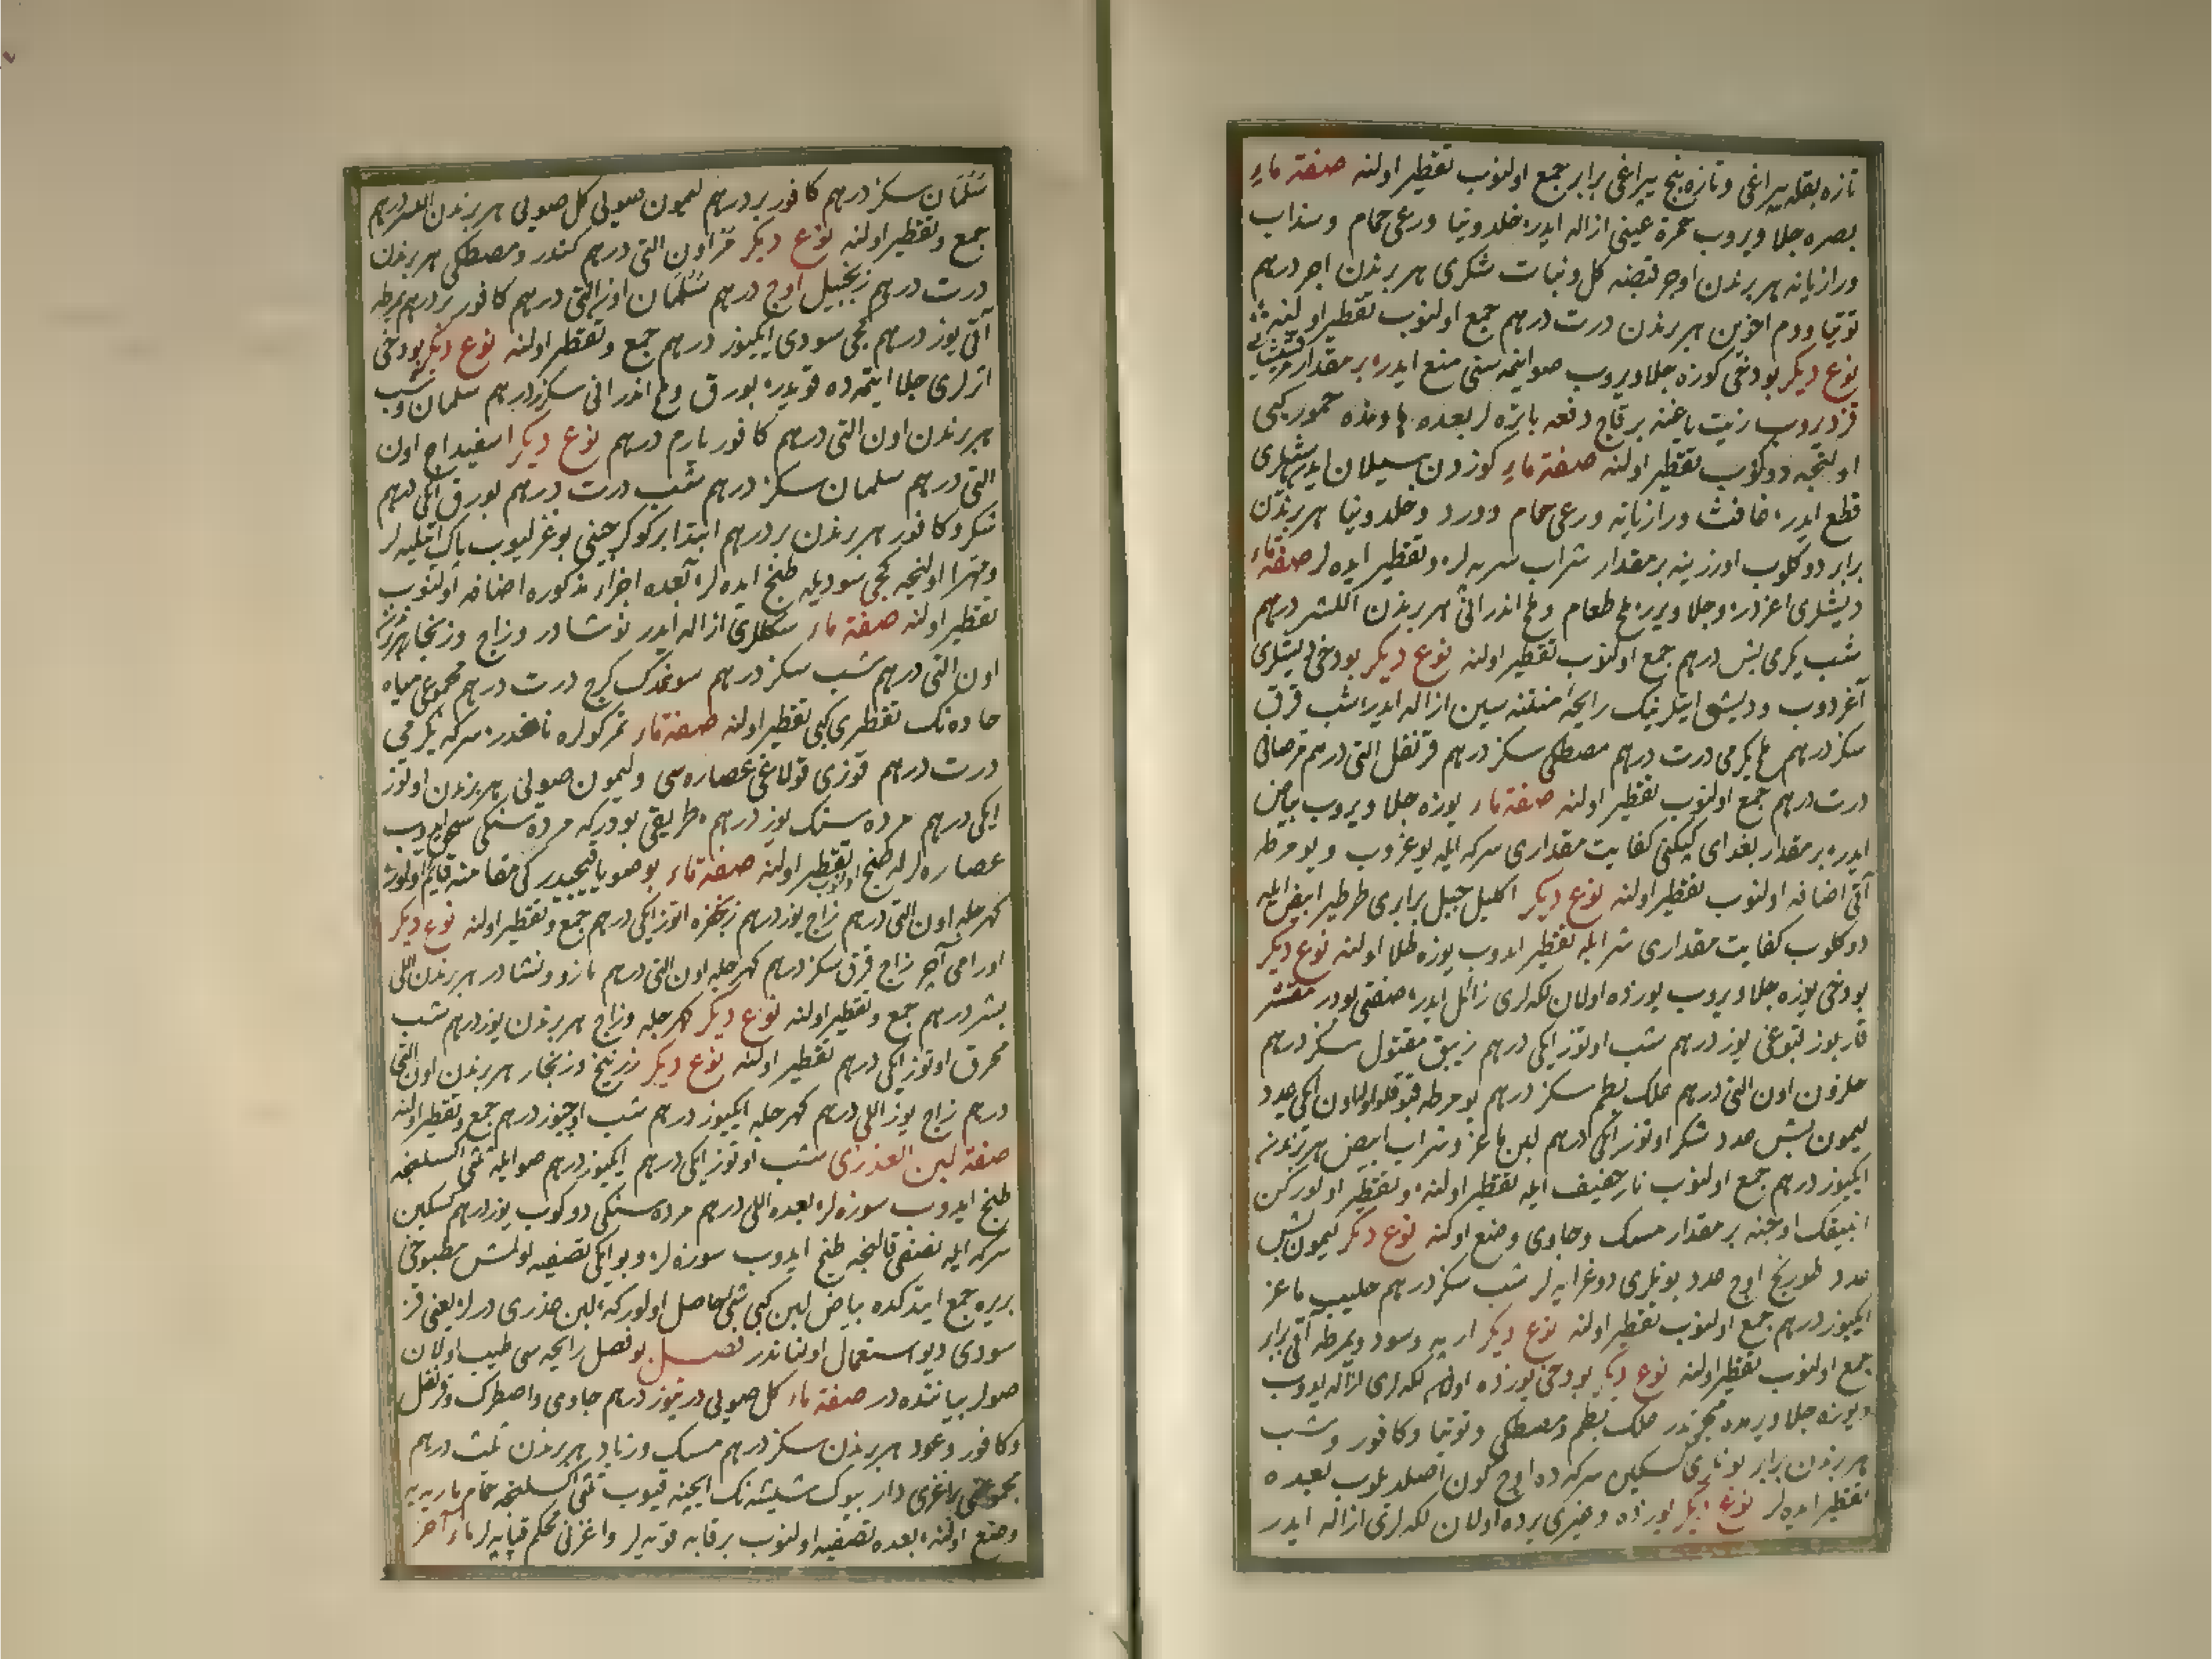 تازه بقله پیراغی و تازه بنج پیراغی برابر جمع اولنوب تقطیر اولنه صفة ماء
بصره جلا ویروب حمرة عینی ازاله ایدر خلدونیا ورعی حمام وسذاب
ورازیانه هر برندن اوچر قبضه کل ونبات شکری هر برندن اجر درهم
توتیا ودم اخوین هر برندن درت درهم جمع اولنوب تقطیر اولنه
نوع دیکر بودخی کوزه جلا ویروب صو اینمه سنی منع ایدر بر مقدار مرقشیثا
قزدیروب زیت یاغنه بر قاچ دفعه باتره لر بعده هاونده خمور کبی
اولنجه دوکوب تقطیر اولنه صفة ماء کوزدن سیلان ایدن یاشلری
قطع ایدر رازیانه ورعی حمام وورد وخلدونیا هر برندن
برابر دوکلوب اوزرینه بر مقدار شراب سرپه لر وتقطیر ایده لر صفة ماء
دیشلری اغردر وجلا ویرر ملح طعام وملح اندرانی هر برندن اللیشر درهم
شب یکرمی بش درهم جمع اولنوب تقطیر اولنه نوع دیکر بودخی دیشلری
آغردوب ودیش اتلرینک رایحۀ منتنه سین ازاله ایدر شب قرق
سکز درهم ملح یکرمی درت درهم مصطکی سکز درهم قرنفل التی درهم مرصافی
درت درهم جمع اولنوب تقطیر اولنه صفة ماء یوزه جلا ویروب بیاض
ایدر بر مقدار بغدای کپکنی کفایت مقداری سرکه ایله یوغروب ویومرطه
آقی اضافه اولنوب تقطیر اولنه نوع دیکر اکلیل جبل برابری طرطیر ابیض ایله
دوکلوب کفایت مقداری شراب ایله تقطیر ایدوب یوزه طلا اولنه نوع دیکر
بودخی یوزه جلا ویروب یوزده اولان لکه لری زائل ایدر صفتی بودر مقشر
قاربوز قبوغی یوز درهم شب اوتوز ایکی درهم زیبق مقتول سکز درهم
حلزون اون التی درهم علک بطم سکز درهم یومرطه اون ایکی عدد
لیمون بش عدد شکر اوتوز ایکی درهم لبن ماعز وشراب ابیض هر برندن
ایکیوز درهم جمع اولنوب نار خفیف ایله تقطیر اولنه وتقطیر اولورکن
انبیقک اوجنه بر مقدار مسک وجاوی وضع اولنه نوع دیکر لیمون بش
عدد طورنج اوچ عدد بونلری دوغرایه لر شب سکز درهم حلیب ماعز
ایکیوز درهم جمع اولنوب تقطیر اولنه نوع دیکر ارپه وسود ویمرطه آقی برابر
جمع اولنوب تقطیر اولنه نوع دیکر بودخی یوزده اولان لکه لری ازاله ایدوب
ویوزه جلا ویرمده مجربدر علک بطم ومصطکی وتوتیا وکافور وشب
هر برندن برابر بونلری کسکین سرکه ده اوچ کون اصلدلوب بعده
تقطیر ایده لر نوع دیکر یوزده وغیری یرده اولان لکه لری ازاله ایدر
سلمان سکز درهم کافور بر درهم لیمون صویی کل صویی هر برندن اللیشر درهم
جمع وتقطیر اولنه نوع دیکر مر اون التی درهم کندر ومصطکی هر برندن
درت درهم زنجبیل اوچ درهم سلمان اون التی درهم کافور بر درهم یمرطه
آقی یوز درهم کچی سودی ایکیوز درهم جمع وتقطیر اولنه نوع دیکر بودخی
اثرلری جلا ایتمه ده قویدر بورق وملح اندرانی سکز درهم سلمان وشب
هر برندن اون التی درهم کافور یارم درهم نوع دیکر اسفیداج اون
التی درهم سلمان سکز درهم شب درت درهم بورق ایکی درهم
شکر وکافور هر برندن بر درهم ابتدا بر کوکرجینی بوغزلیوب پاک ایلیه لر
ومهرا اولنجه کچی سودیله طبخ ایده لر بعده اجزاء مذکوره اضافه اولنوب
تقطیر اولنه صفة ماء سکللری ازاله ایدر نوشادر وزاج وزنجار هر برندن
اون التی درهم شب سکز درهم سونمدک کرج درت درهم مجموعی میاه
حاده نک تقطری کبی تقطیر اولنه صفة ماء تمرکولره نافعدر سرکه یکرمی
درت درهم قوزی قولاغی عصاره سی ولیمون صویی هر برندن اوتوز
ایکی درهم مرده سنک یوز درهم طریقی بودرکه مرده سنکی سحق ایدوب
عصاره لرله طبخ اولنوب تقطیر اولنه صفة ماء بو صو یاقیجیدر کی مقامنه قایم اولور
کهرجله اون التی درهم زاج یوز درهم زنجفره اتوز ایکی درهم جمع وتقطیر اولنه نوع دیکر
اورامی آخر زاج قرق سکز درهم کهرجله اون التی درهم مازو ونشادر هر برندن اللی
بشر درهم جمع وتقطیر اولنه نوع دیکر کهرجله وزاج هر برندن یوز درهم شب
محرق اوتوز ایکی درهم تقطیر اولنه نوع دیکر زرنیخ وزنجار هر برندن اون التی
درهم زاج یوز اللی درهم کهرجله ایکیوز درهم شب اوچیوز درهم جمع وتقطیر اولنه
صفة لبن العذری شب اوتوز ایکی درهم ایکیوز درهم صو ایله ثلثی اکسلنجه
طبخ ایدوب سوزه لر بعده اللی درهم مرده سنکی دوکوب یوز درهم کسکین
سرکه ایله نصفی قالنجه طبخ ایدوب سوزه لر وبو ایکی تصفیه اولنمش مطبوخی
بریره جمع ایتدکده بیاض لبن کبی شی حاصل اولورکه لبن عذری درلر یعنی قز
سودی دیو استعمال اولناندر فصل بو فصل رایحه سی طیب اولان
صولر بیاننده در صفة ماء کل صویی درتیوز درهم جاوی واصطرک وقرنفل
وکافور وعود هر برندن سکز درهم مسک وزباد هر برندن ثلث درهم
مجموعنی اغزی دار بیوک شیشه نک ایچنه قیوب ثلثی اکسلنجه حمام ماریه یه
وضع اولنه بعده تصفیه اولنوب بر قابه قویه لر واغزنی محکم قپایه لر ماء آخر